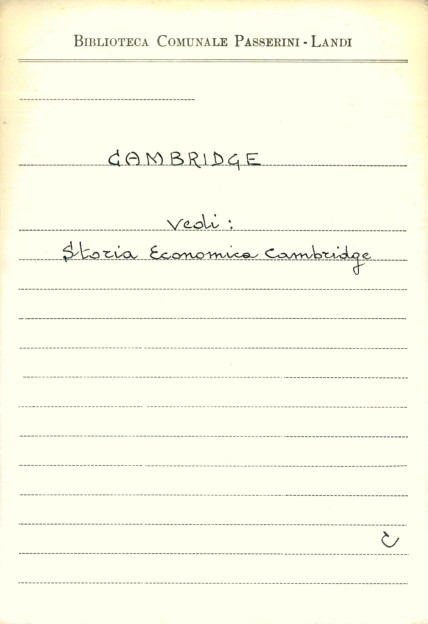 Biblioteca Comunale Passerini - Landi
CAMBRIDGE
vedi :
Storia Economica Cambridge